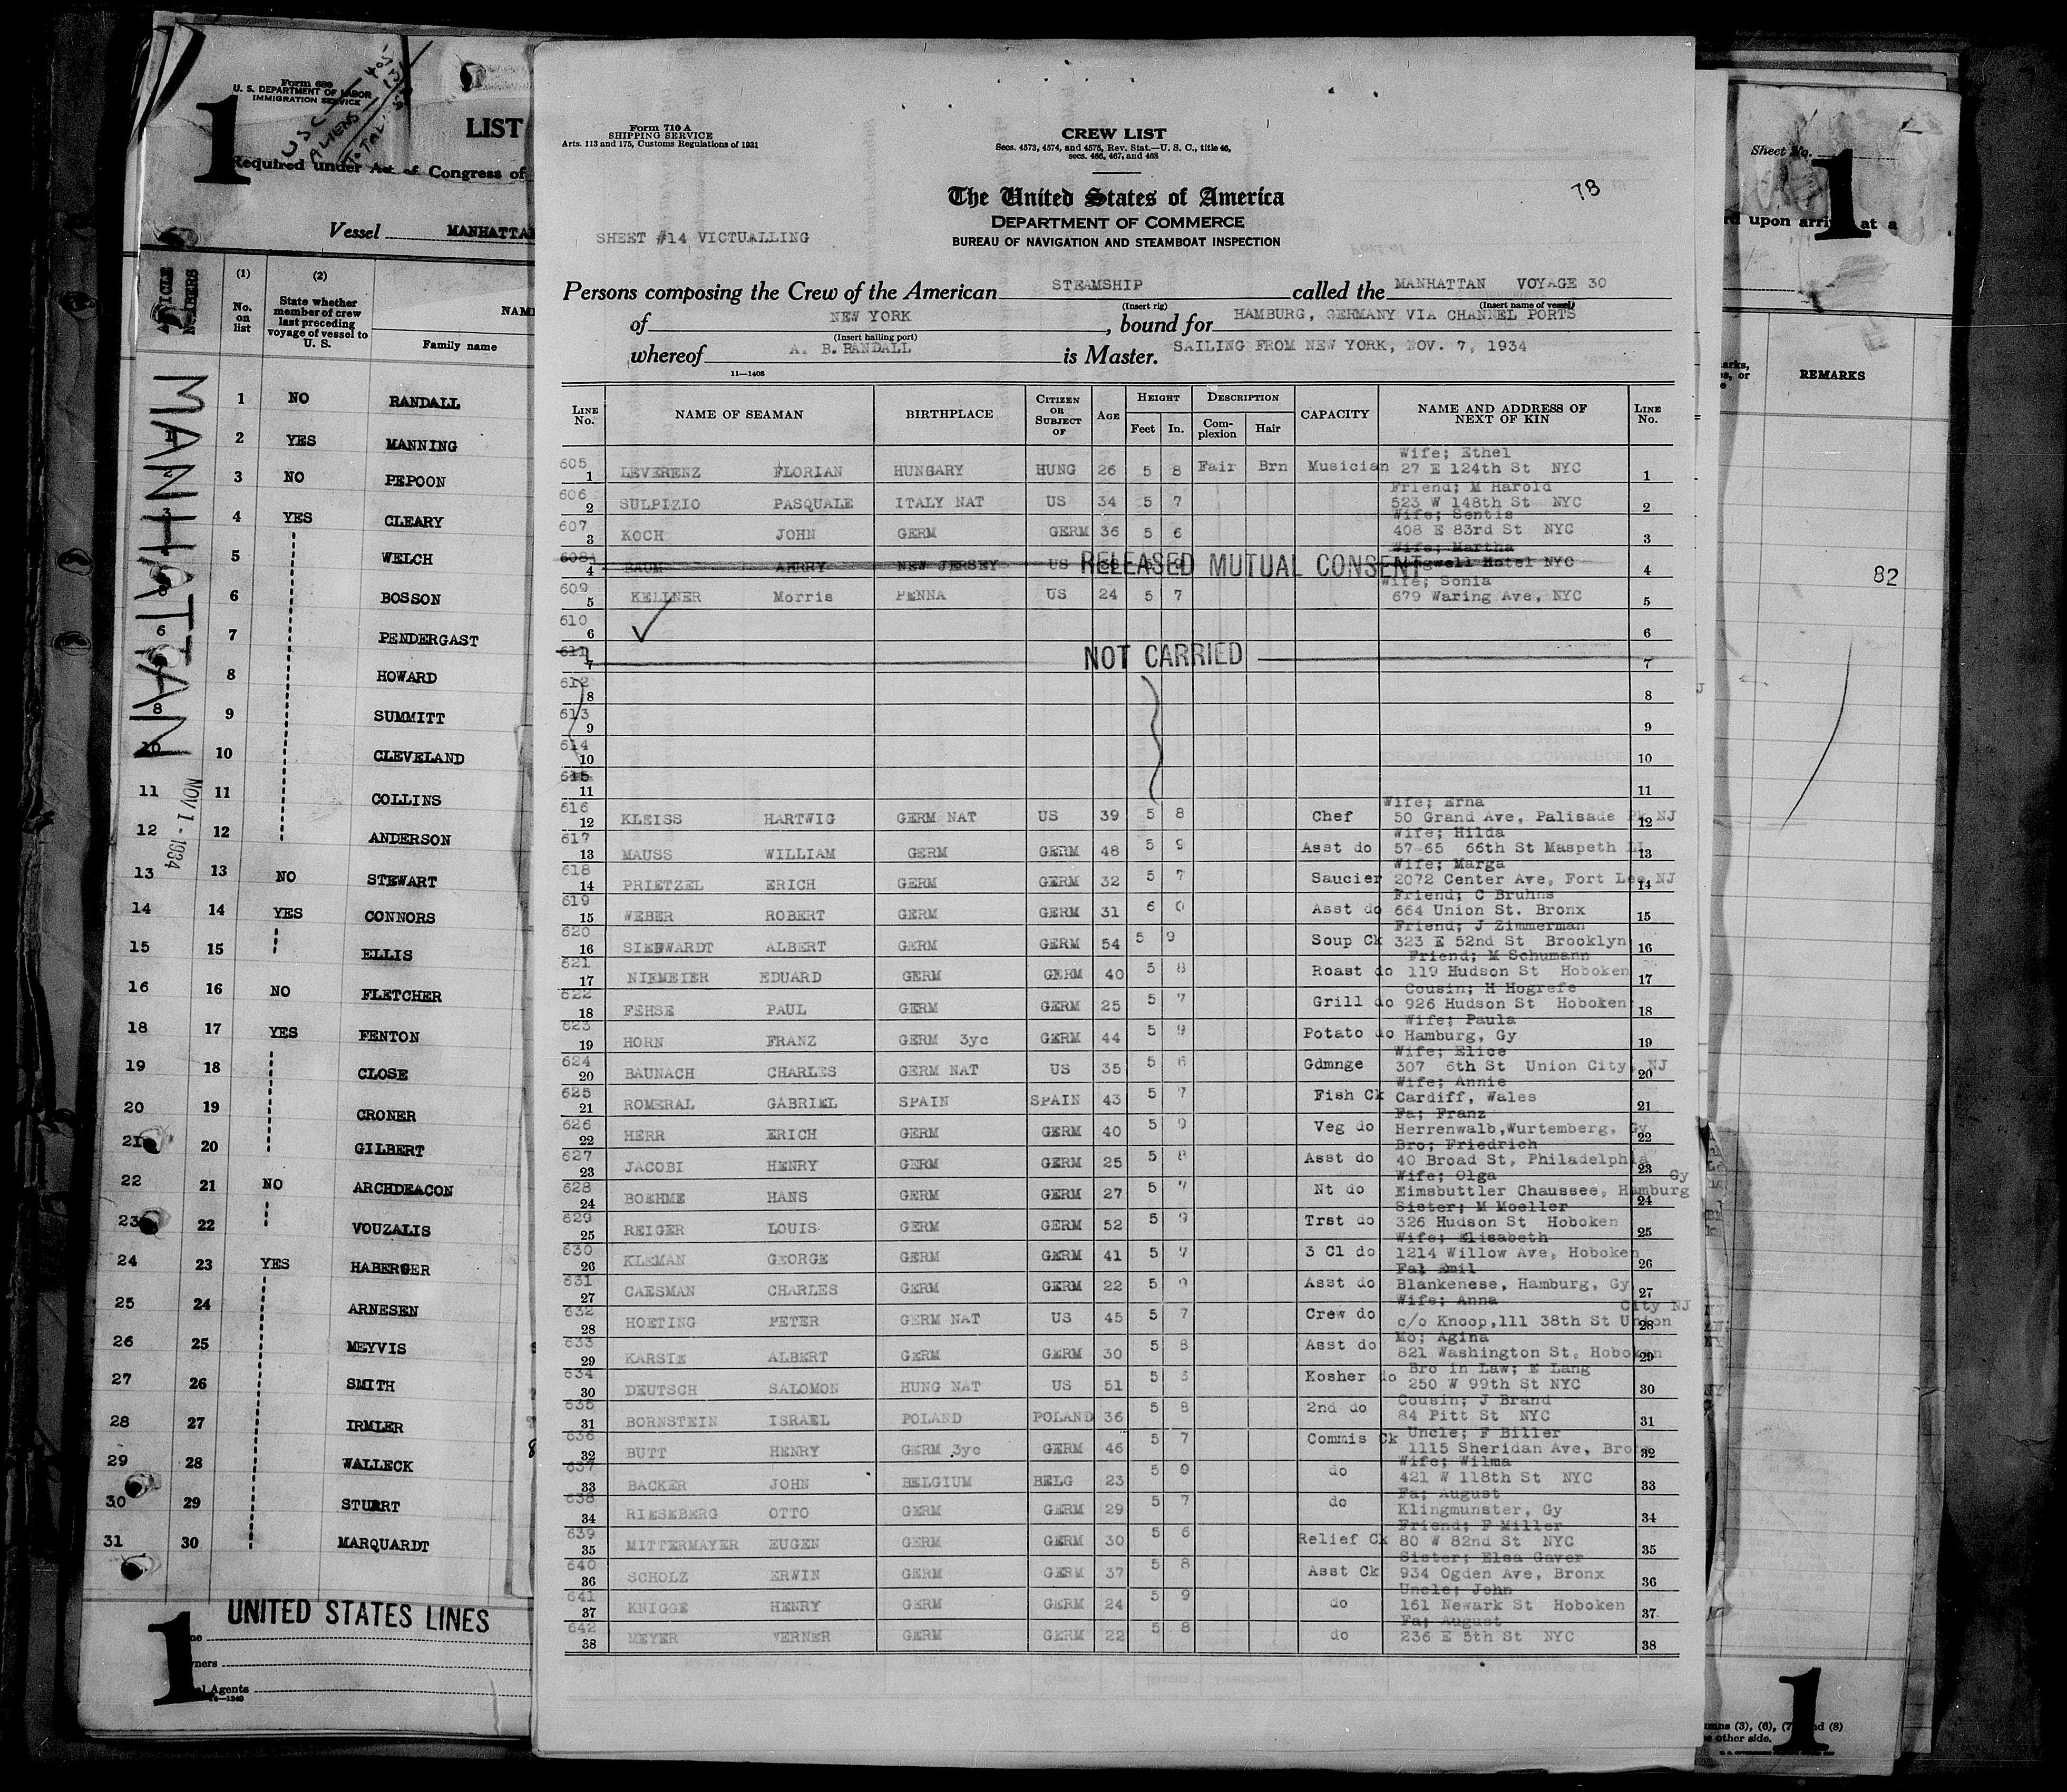 Form 689
U. S. DEPARTMENT OF LABOR
IMMIGRATION SERVICE
1
USC
ALIENS
TOTAL
LIST
Required under Act of Congress of
Vessel MANHATTAN
ARTICLE NUMBERS
(1) (2)
No. on list
State whether member of crew last preceding voyage of vessel to U. S.
Family name
MANHATTAN
NOV 1 - 1934
1 NO RANDALL
2 YES MANNING
3 NO PEPOON
4 YES CLEARY
5 WELCH
6 BOSSON
6 7 PENDERGAST
8 HOWARD
8 9 SUMMITT
10 10 CLEVELAND
11 11 COLLINS
12 12 ANDERSON
13 13 NO STEWART
14 14 YES CONNORS
15 15 ELLIS
16 16 NO FLETCHER
18 17 YES FENTON
19 18 CLOSE
20 19 CRONER
21 20 GILBERT
22 21 NO ARCHDEACON
23 22 VOUZALIS
24 23 YES HABERGER
25 24 ARNESEN
26 25 MEYVIS
27 26 SMITH
28 27 IRMLER
29 28 WALLECK
30 29 STUART
31 30 MARQUARDT
UNITED STATES LINES
1
Agents
Form 710 A
SHIPPING SERVICE
Arts. 113 and 175, Customs Regulations of 1931
CREW LIST
Secs. 4573, 4574, and 4575, Rev. Stat.—U. S. C., title 46,
secs. 466, 467, and 468
The United States of America
DEPARTMENT OF COMMERCE
BUREAU OF NAVIGATION AND STEAMBOAT INSPECTION
78
SHEET #14 VICTUALLING
Persons composing the Crew of the American STEAMSHIP called the MANHATTAN VOYAGE 30
(Insert rig) (Insert name of vessel)
of NEW YORK, bound for HAMBURG, GERMANY VIA CHANNEL PORTS
(Insert hailing port)
whereof A. B. RANDALL is Master. SAILING FROM NEW YORK, NOV. 7, 1934
11—1408
LINE No. NAME OF SEAMAN BIRTHPLACE CITIZEN OR SUBJECT OF AGE HEIGHT Feet In. DESCRIPTION Complexion Hair CAPACITY NAME AND ADDRESS OF NEXT OF KIN LINE No.
Wife; Ethel
605 1 LEVERENZ FLORIAN HUNGARY HUNG 26 5 8 Fair Brn Musician 27 E 124th St NYC 1
Friend; M Harold
606 2 SULPIZIO PASQUALE ITALY NAT US 34 5 7 523 W 148th St NYC 2
Wife; Sentis
607 3 KOCH JOHN GERM GERM 36 5 6 408 E 83rd St NYC 3
Wife; Martha
608 4 BAUM AHRRY NEW JERSEY US RELEASED MUTUAL CONSENT Hotel NYC 4
Wife; Sonia
609 5 KELLNER Morris PENNA US 24 5 7 679 Waring Ave, NYC 5
610 6 6
611 7 NOT CARRIED 7
612 8 8
613 9 9
614 10 10
615 11 11
Wife; Erna
616 12 KLEISS HARTWIG GERM NAT US 39 5 8 Chef 50 Grand Ave, Palisade NJ 12
Wife; Hilda
617 13 MAUSS WILLIAM GERM GERM 48 5 9 Asst do 57-65 66th St Maspeth LI 13
Wife; Marga
618 14 PRIETZEL ERICH GERM GERM 32 5 7 Saucier 2072 Center Ave, Fort Lee, NJ 14
Friend; C Bruhns
619 15 WEBER ROBERT GERM GERM 31 6 0 Asst do 664 Union St. Bronx 15
Friend; J Zimmerman
620 16 SIEGWARDT ALBERT GERM GERM 54 5 9 Soup Ck 323 E 52nd St Brooklyn 16
Friend; M Schumann
621 17 NIEMEIER EDUARD GERM GERM 40 5 8 Roast do 119 Hudson St Hoboken 17
Cousin; H Hogrefe
622 18 FEHSE PAUL GERM GERM 25 5 7 Grill do 926 Hudson St Hoboken 18
Wife; Paula
623 19 HORN FRANZ GERM 3yc GERM 44 5 9 Potato do Hamburg, Gy 19
Wife; Elice
624 20 BAUNACH CHARLES GERM NAT US 35 5 6 Gdmnge 307 6th St Union City, NJ 20
Wife; Annie
625 21 ROMERAL GABRIEL SPAIN SPAIN 43 5 7 Fish Ck Cardiff, Wales 21
Fa; Franz
626 22 HERR ERICH GERM GERM 40 5 9 Veg do Herrenwalb, Wurtemberg, Gy 22
Bro; Friedrich
627 23 JACOBI HENRY GERM GERM 25 5 8 Asst do 40 Broad St, Philadelphia 23
Wife; Olga Gy
628 24 BOEHME HANS GERM GERM 27 5 7 Nt do Eimsbuttler Chaussee, Hamburg 24
Sister; M Moeller
629 25 REIGER LOUIS GERM GERM 52 5 9 Trst do 326 Hudson St Hoboken 25
Wife; Elisabeth
630 26 KLEMAN GEORGE GERM GERM 41 5 7 3 Cl do 1214 Willow Ave, Hoboken 26
Fa; Emil
631 27 CAESMAN CHARLES GERM GERM 22 5 9 Asst do Blankenese, Hamburg, Gy 27
Wife; Anna City NJ
632 28 HOETING PETER GERM NAT US 45 5 7 Crew do c/o Knoop, 111 38th St Union 28
Mo; Agina
633 29 KARSIE ALBERT GERM GERM 30 5 8 Asst do 821 Washington St, Hoboken 29
Bro in Law; E Lang
634 30 DEUTSCH SALOMON HUNG NAT US 51 5 3 Kosher do 250 W 99th St NYC 30
Cousin; J Brand
635 31 BORNSTEIN ISRAEL POLAND POLAND 36 5 8 2nd do 84 Pitt St NYC 31
Uncle; F Biller
636 32 BUTT HENRY GERM 3yc GERM 46 5 7 Commis Ck 1115 Sheridan Ave, Bro 32
Wife; Wilma
637 33 BACKER JOHN BELGIUM BELG 23 5 9 do 421 W 118th St NYC 33
Fa; August
638 34 RIESEBERG OTTO GERM GERM 29 5 7 do Klingmunster, Gy 34
Friend; F Miller
639 35 MITTERMAYER EUGEN GERM GERM 30 5 6 Relief Ck 80 W 82nd St NYC 35
Sister; Elsa Gaver
640 36 SCHOLZ ERWIN GERM GERM 37 5 8 Asst Ck 934 Ogden Ave, Bronx 36
Uncle; John
641 37 KNIGGE HENRY GERM GERM 24 5 9 do 161 Newark St Hoboken 37
Fa; August
642 38 MEYER VERNER GERM GERM 22 5 8 do 236 E 5th St NYC 38
Sheet No.
1
upon arrival at a
REMARKS
82
(3), (6), (7) and (8)
other side.
1